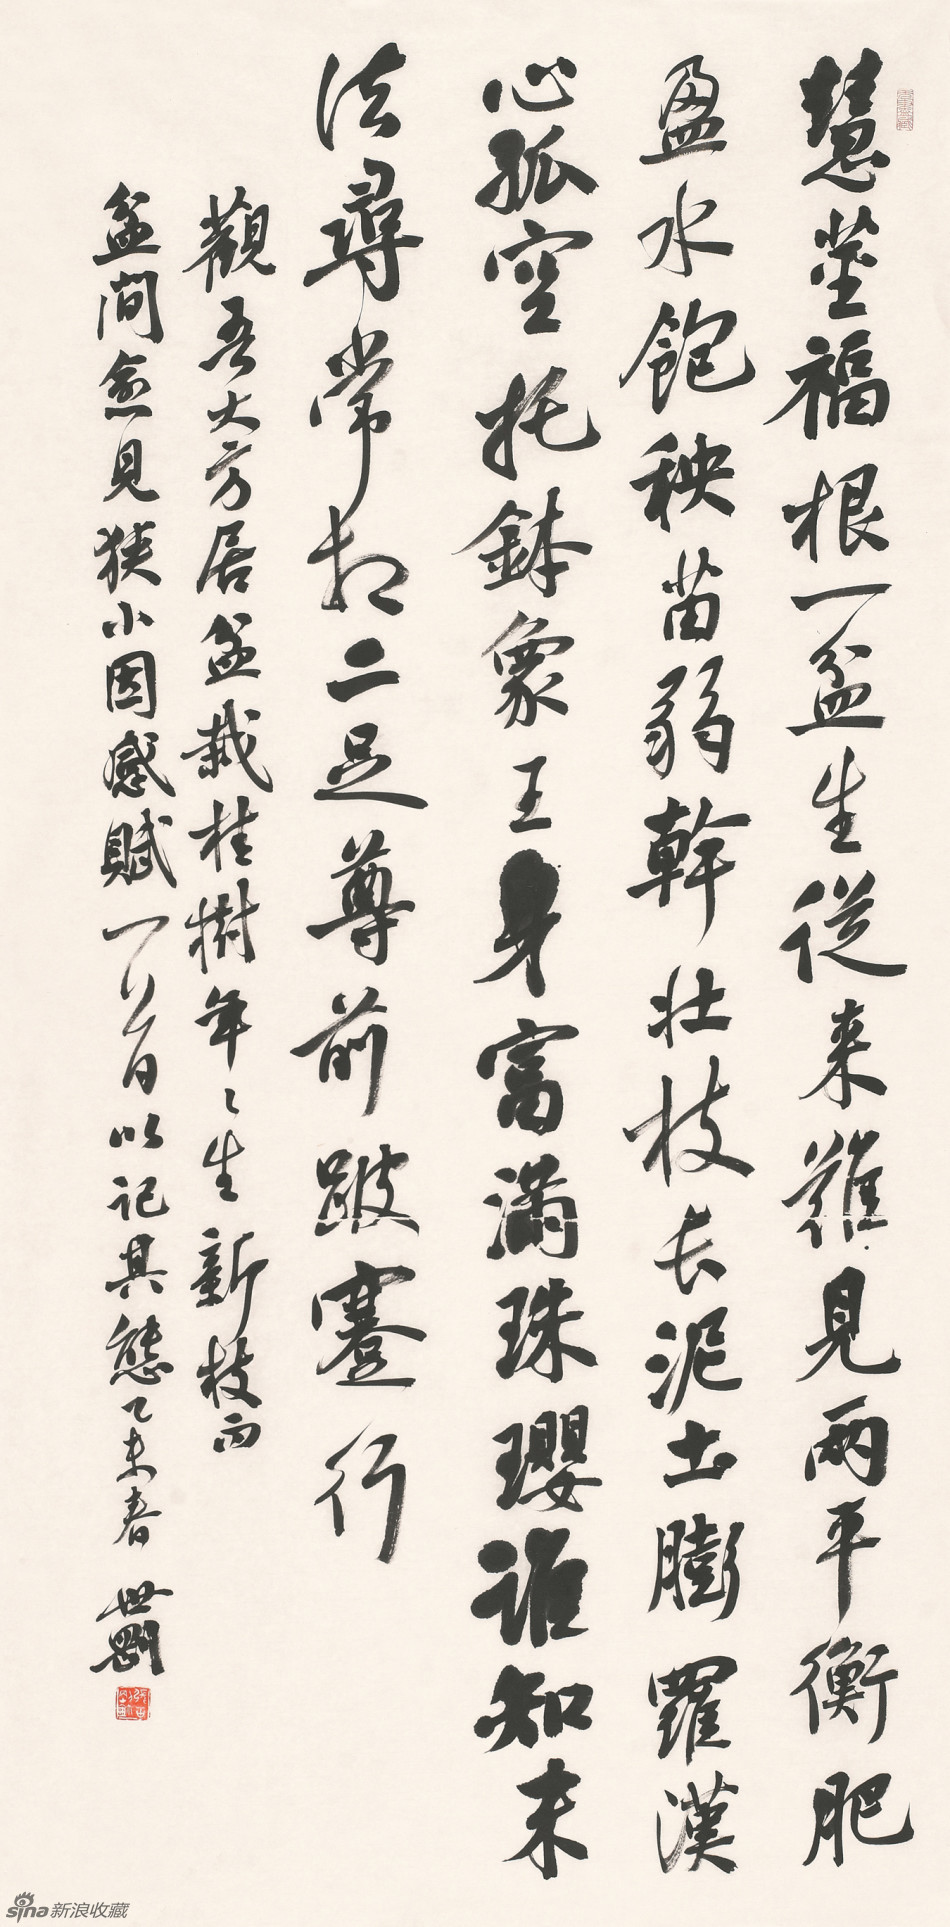 慧茎福根一盆生從来難見兩平衡肥
盈水飽秧苗弱幹壯枝长泥土膨羅漢
心孤空托鉢象王身富滿珠瓔誰知末
法尋常相二足尊前跛蹇行
觀吾大方居盆栽桂樹年々生新枝而
盆間愈見狹小因感賦一首以記其態乙未春 世剛
sina新浪收藏